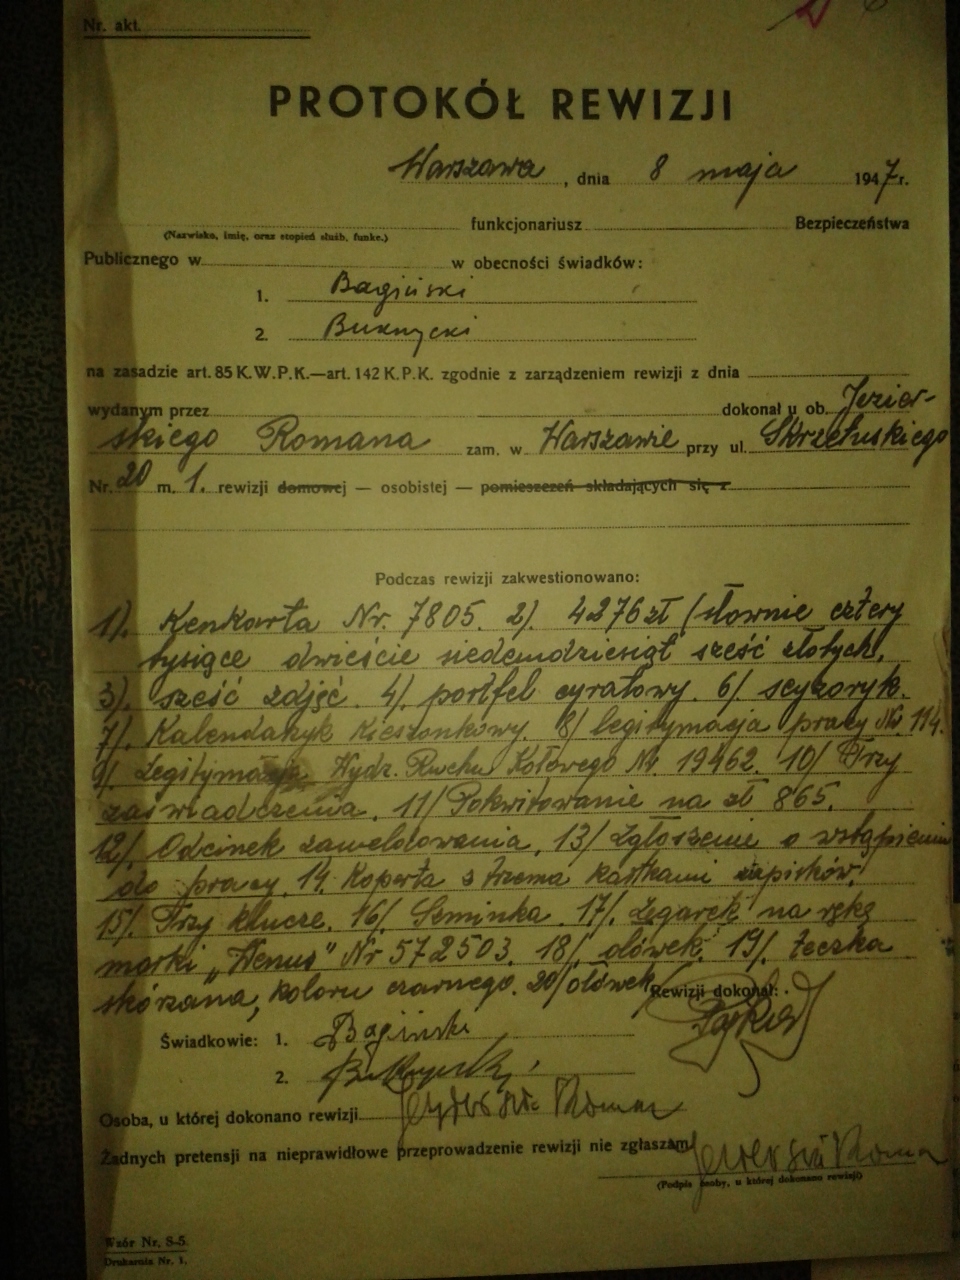 Nr. akt.
PROTOKÓŁ REWIZJI
Warszawa, dnia 8 maja 1947 r.
funkcjonariusz Bezpieczeństwa
(Nazwisko, imię, oraz stopień służb. funkc.)
Publicznego w w obecności świadków:
1. Bagiński
2. Buknycki
na zasadzie art. 85 K.W.P.K.—art. 142 K.P.K. zgodnie z zarządzeniem rewizji z dnia
wydanym przez dokonał u ob. Jezier-
skiego Romana zam. w Warszawie przy ul. Skrzetuskiego
Nr. 20 m. 1. rewizji domowej — osobistej — pomieszczeń składających się z
Podczas rewizji zakwestionowano:
1). Kenkarta Nr. 7805. 2). 4276 zł (słownie cztery
tysiące dwieście siedemdziesiąt sześć złotych,
3). sześć zdjęć. 4). portfel cyratowy. 6/. scyzoryk.
7/. Kalendarzyk kieszonkowy. 8/ legitymacja pracy Nr. 114.
9/. Legitymacja Wydz. Ruchu Kołowego Nr. 19462. 10/ Trzy
zaświadczenia. 11/ Pokwitowanie na zł 865.
12/. Odcinek zameldowania, 13/ Zgłoszenie o wstąpieniu
do pracy. 14. Koperta z trzema kartkami zapisków.
15/. Trzy klucze. 16/. Szminka. 17/. Zegarek na rękę
marki „Wenus" Nr 572503. 18/. ołówek. 19/. teczka
skórzana, koloru czarnego. 20/ ołówek/
Rewizji dokonał:
Świadkowie: 1. Bagiński
2.
Osoba, u której dokonano rewizji Jezierski Roman
Żadnych pretensji na nieprawidłowe przeprowadzenie rewizji nie zgłaszam
Jezierski Roman
(Podpis osoby, u której dokonano rewizji)
Wzór Nr. S-5.
Drukarnia Nr. 1.